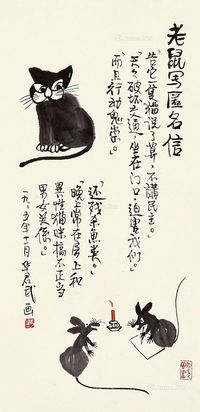 老鼠写匿名信
“告它一：爱猫说了算，不讲民主。”
“天々破坏交通，坐在门口，迫害我们。”
“而且行动鬼祟。”
“还残杀鱼类。”
“晚上常在房上和
异性猫咪搞不正当
男女关系。”
一九八五年十一月 华君武画